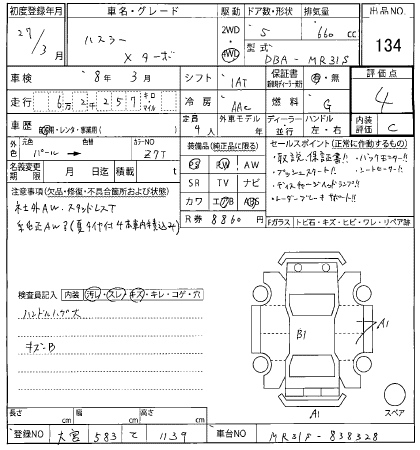 初度登録年月 車名・グレード 駆動 ドア数・形状 排気量 出品NO.
27/3月 ハスラー Xターボ 2WD・4WD 5 660 cc 134
型式 DBA-MR31S
車検 8年 3月 シフト IAT 保証書 有・無 評価点 4
走行 6万2千257 キロ・マイル 冷房 AAC 燃料 G
車歴 自家用・レンタ・事業用( ) 定員 4人 外車モデル 年 ディーラー・並行 ハンドル 左・右 内装評価 C
外色 元色 パール → 色替 カラーNO Z7T
名義変更期限 月 日迄 月 日迄
装備品(純正品に限る)
PS PW AW
SR TV ナビ
カワ エアB ABS
R券 8860 円
セールスポイント(正常に作動するもの)
・取説、保証書!! ・バックモニター!!
・プッシュスタート!! ・シートヒーター!!
・ディスチャージヘッドランプ!!
・レーダーブレーキサポート!!
注意事項(欠品・修復・不具合箇所および状態)
社外AW、スタッドレスT
純正AW了(夏タイヤ付4本車内積込み)
Fガラス トビ石・キズ・ヒビ・ワレ・リペア跡
検査員記入 内装 汚レ・スレ・キズ・キレ・コゲ・穴
ハンドルハゲ大
キズ-B
B1
A1
A1
スペア
長さ cm 幅 cm 高さ cm
登録NO 大宮 583 て 1139 車台NO MR31S-838328